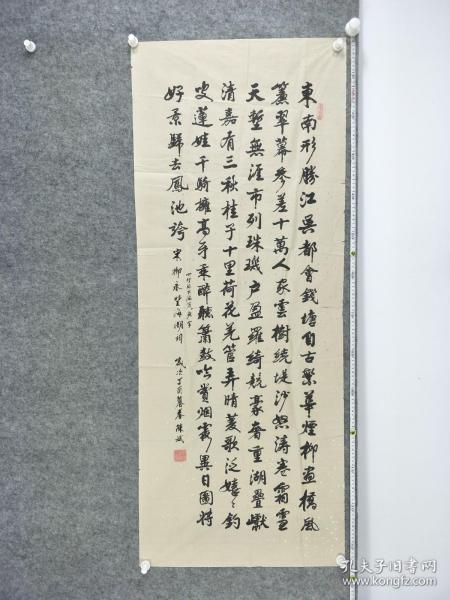 東南形勝江吳都會錢塘自古繁華煙柳畫橋風
簾翠幕參差十萬人家雲樹繞堤沙怒濤卷霜雪
天塹無涯市列珠璣户盈羅綺競豪奢重湖疊巘
清嘉有三秋桂子十里荷花羌管弄晴菱歌泛嬉〻釣
叟蓮娃千騎擁高牙乘醉聽簫鼓吟賞烟霞異日圖將
好景歸去鳳池誇 宋柳永望海潮詞 歲次丁酉暮春陳斌
孔夫子旧书网
www.kongfz.com